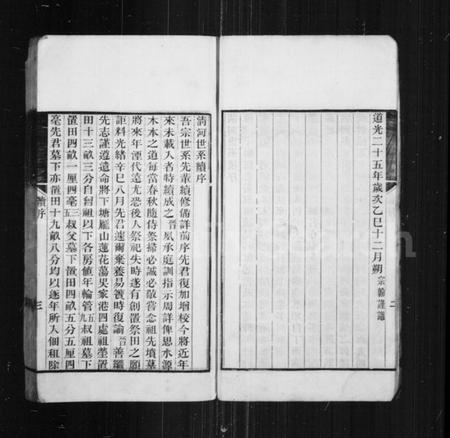 道光二十五年歲次乙巳十二月朔宗翰謹識
清河世系續序
吾宗世系先輩續修備詳前序先君復加增校今將近年
來未載入者特續成之晉夙承庭訓指示周詳俾思水源
木本之道每當春秋隨侍祭掃必誠必敬嘗念祖先墳墓
將來年湮代遠尤恐後人祭祀失時遂有創置祭田之願
詎料光緒辛巳八月先君遽爾棄養易簀時復諭晉善繼
先志謹遵遺命將下塘雁山蓮花蕩吳家港四處祖塋置
田十三畝三分自耐祖以下各房値年輪管五九叔祖墓下
置田四畝一厘四毫五三叔父墓下置田四畝五分五厘四
毫先君墓下亦置田十九畝八分均以逐年所入個租除
續序
三
二